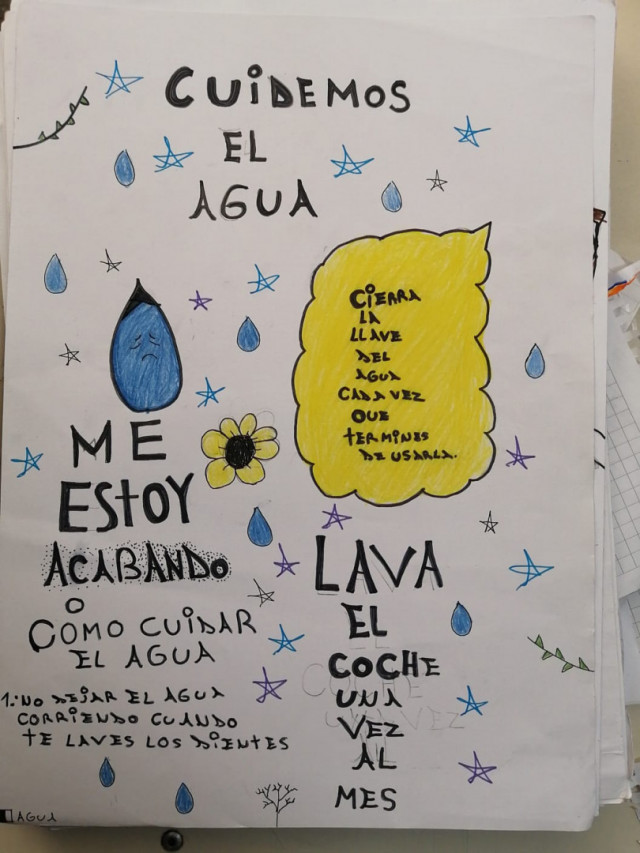 CUIDEMOS
EL
AGUA
CIERRA
LA
LLAVE
DEL
AGUA
CADA VEZ
QUE
TERMINES
DE USARLA.
ME
ESTOY
ACABANDO
O
COMO CUIDAR
EL AGUA
1.- NO DEJAR EL AGUA
CORRIENDO CUANDO
TE LAVES LOS DIENTES
LAVA
EL
COCHE
UNA
VEZ
AL
MES
AGUA